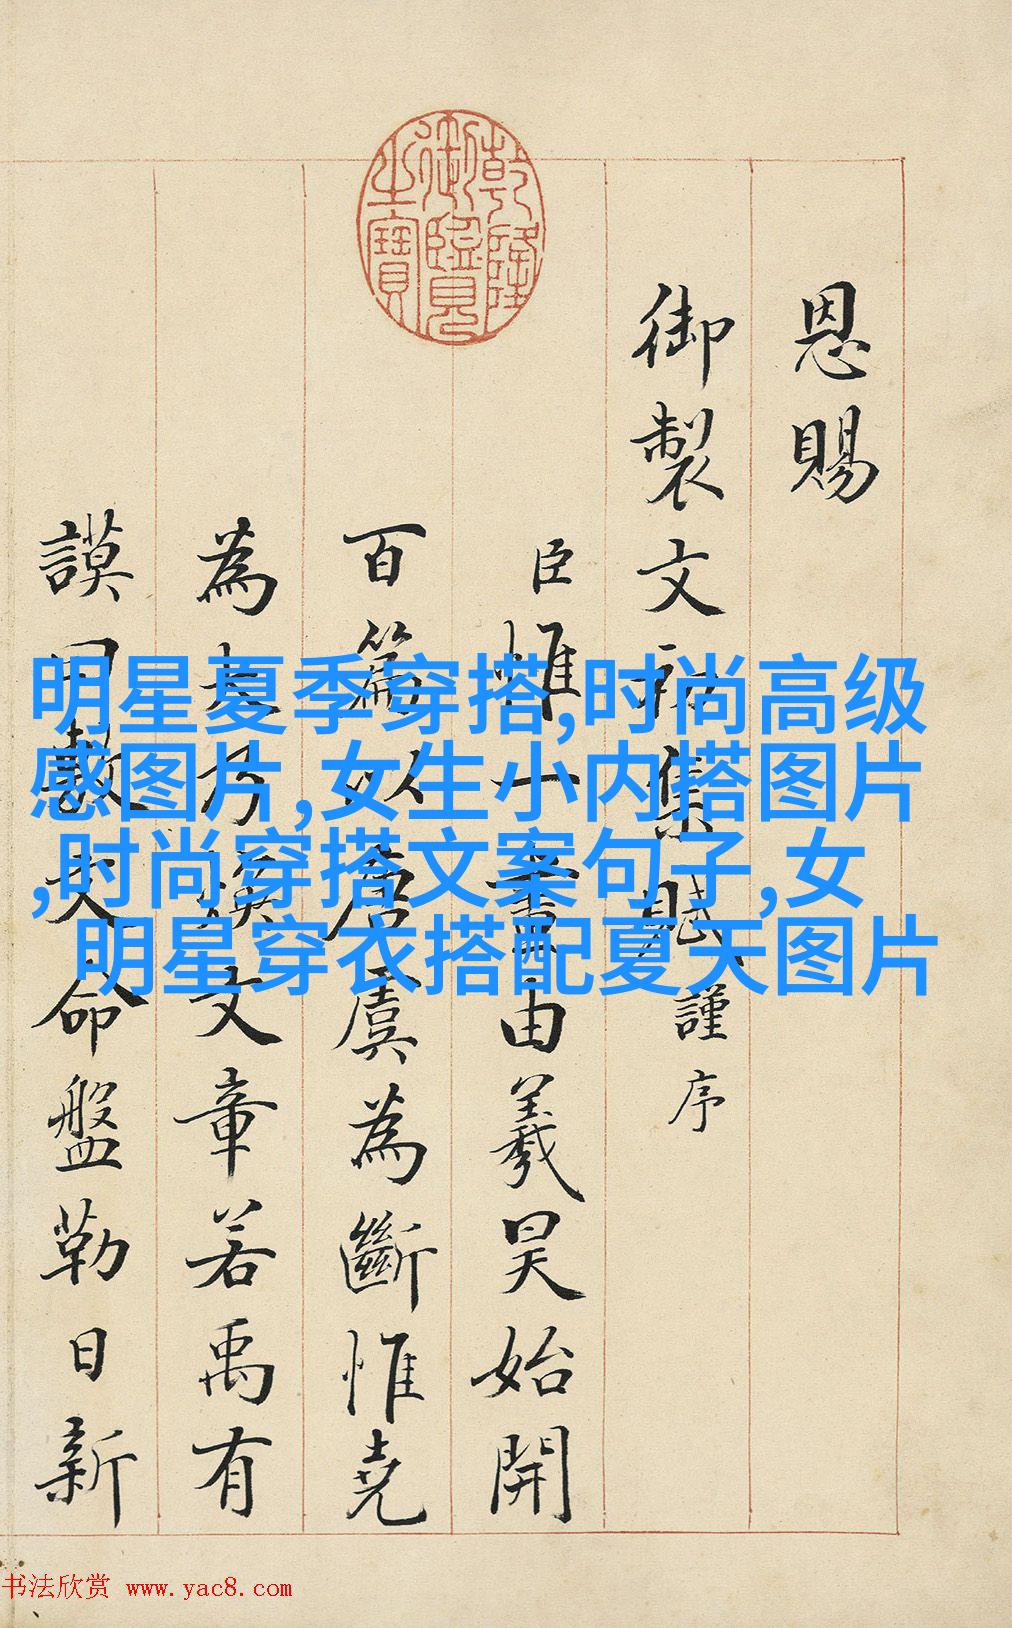 乾隆
御覽
之寶
恩賜
御製文初集賦謹序
臣惟一畫由羲昊始開
百篇以唐虞為斷惟堯
為大乃煥文章若禹有
謨用敷文命盤勒日新
明星夏季穿搭,时尚高级
感图片,女生小内搭图片
,时尚穿搭文案句子,女
明星穿衣搭配夏天图片
书法欣赏 www.yac8.com